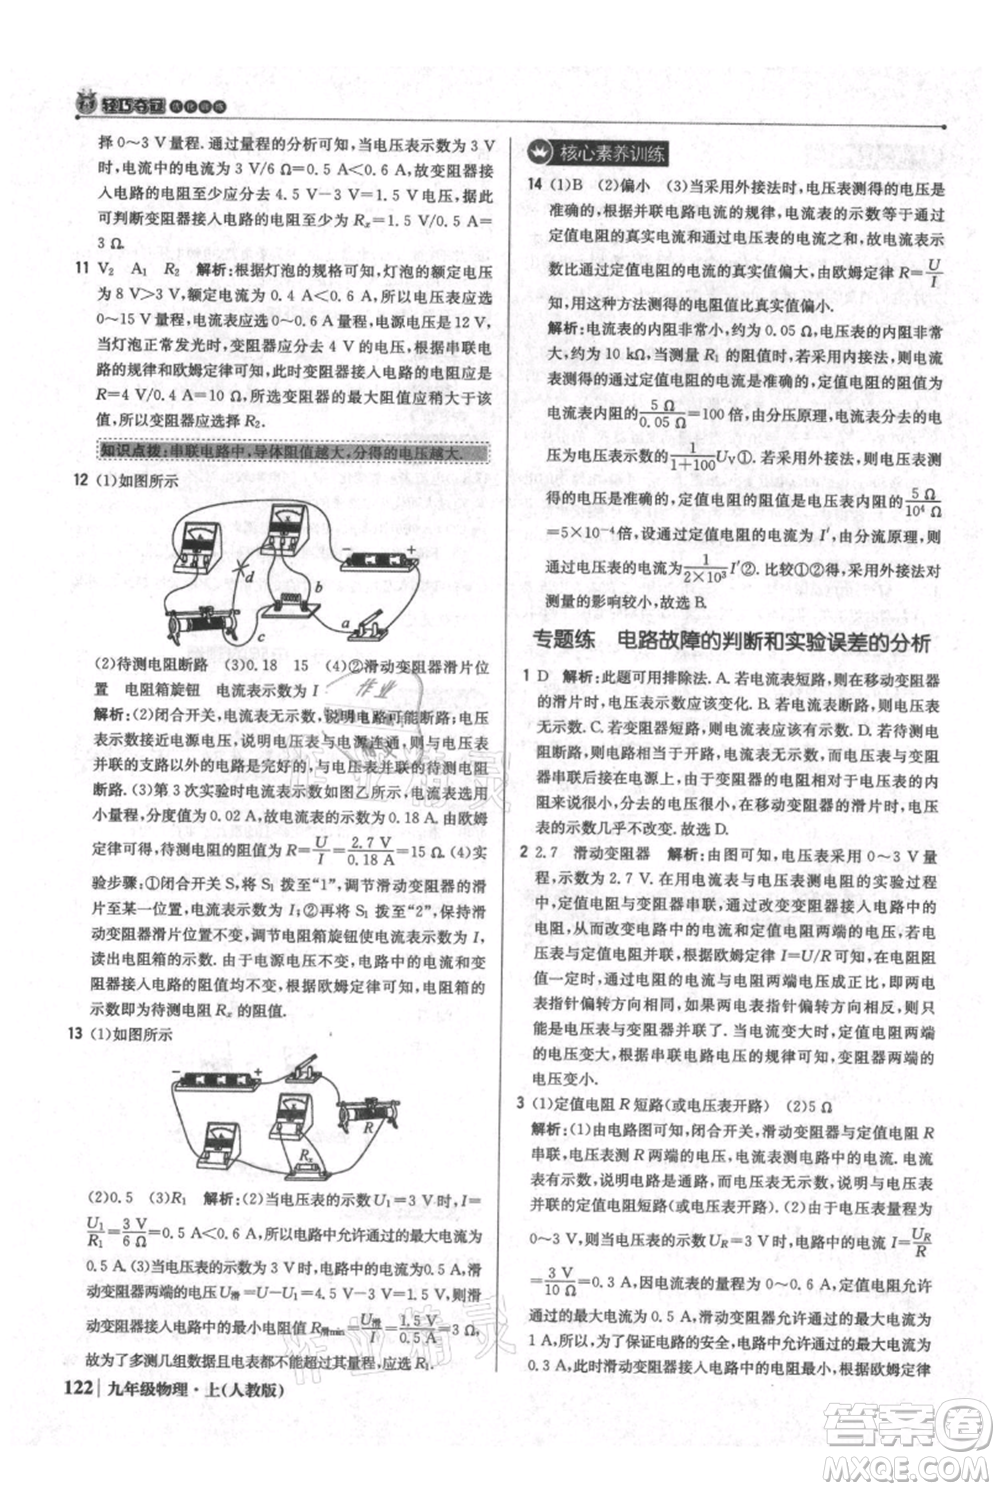 1+1 轻巧夺冠 优化训练
择 0～3 V 量程. 通过量程的分析可知, 当电压表示数为 3 V
时, 电流中的电流为 3 V/6 Ω=0.5 A<1 A, 因此要使变阻器接
入电路的电阻至少应分担 4.5 V－3 V=1.5 V 的电压, 由此
可判断变阻器接入电路的电阻至少为 Rₓ=1.5 V/0.5 A=
3 Ω.
11 V₂ A₁ R₂ 解析: 根据灯泡的规格可知, 灯泡的额定电压
为 8 V>3 V, 额定电流为 0.4 A<0.6 A, 所以电压表应选
0～15 V 量程, 电流表选 0～0.6 A 量程, 电源电压是 12 V,
当灯泡正常发光时, 变阻器应分担 4 V 的电压, 根据串联电
路的规律和欧姆定律可知, 此时变阻器接入电路的电阻应是
R=4 V/0.4 A=10 Ω, 所选变阻器的最大阻值应稍大于该
值, 所以变阻器应选择 R₂.
知识点拨: 串联电路中, 导体阻值越大, 分得的电压越大.
12 (1)如图所示
A V － ＋ d b a c
(2)待测电阻断路 (3)0.18 15 (4)①滑动变阻器滑片位
置 电阻箱旋钮 电流表示数为 I
解析: (2)闭合开关, 电流表无示数, 说明电路可能断路; 电压
表示数接近电源电压, 说明电压表与电源连通, 则与电压表
并联的支路以外的电路是完好的, 则与电压表并联的待测电阻
断路. (3)第 3 次实验时电流表示数如图乙所示, 电流表选用
小量程, 分度值为 0.02 A, 故电流表示数为 0.18 A. 由欧姆
定律可得, 待测电阻的阻值为 R=U/I=2.7 V/0.18 A=15 Ω. (4)实
验步骤: ①闭合开关, 将 S₁ 拨至“1”, 调节滑动变阻器的滑
片至某一位置, 电流表示数为 I; ②再将 S₁ 拨至“2”, 保持滑动
变阻器滑片位置不变, 调节电阻箱旋钮使电流表示数为 I,
读出电阻箱的阻值. 由于电源电压不变, 变阻器接入电路中
的阻值均不变, 电流表示数不变, 根据欧姆定律, 电阻箱的
示数即为待测电阻 Rₓ 的阻值.
13 (1)如图所示
－ ＋ R Rₓ
(2)0.5 (3)R₁ 解析: (2)当电压表的示数 U₁=3 V 时, I=
U₁/R₁=3 V/6 Ω=0.5 A<0.6 A, 所以电路中允许通过的最大电流为
0.5 A. (3)电源电压为 4.5 V, 电路中的电流为 0.5 A 时, 滑动
变阻器两端的电压 U滑=U－U₁=4.5 V－3 V=1.5 V, 滑动
变阻器接入电路中的最小电阻值 R滑min=U滑/I=1.5 V/0.5 A=3 Ω,
故为了多测几组数据且电表都不能超过其量程, 应选 R₁.
核心素养训练
14 (1)B (2)偏小 (3)当采用外接法时, 电压表测得的电压是
准确的, 根据并联电路电流的规律, 电流表的示数等于通过
定值电阻的真实电流与通过电压表的电流之和, 故电流表示
数比通过定值电阻的电流的真实值偏大, 由欧姆定律 R=U/I
知, 用这种方法测得的电阻值比真实值偏小.
解析: 电流表的内阻非常小, 只有约 0.05 Ω, 电压表的内阻非常
大, 约为 10 kΩ, 当测量 R₁ 的阻值时, 若采用内接法, 则电流
表内阻与定值电阻串联, 则得待测定值电阻的阻值是
电流表内阻的 5 Ω/0.05 Ω=100 倍, 由分压原理, 电流表分担的电
压为电压表示数的 1/(1+100) U_V①; 若采用外接法, 则电流表测
得的电流偏大, 待测定值电阻的阻值是电压表内阻的 5 Ω/10⁴ Ω
=5×10⁻⁴ 倍, 设电流表的示数为 I′, 由分流原理, 通过电压
表的电流为 1/(2×10³) I′②. 比较①②可知, 采用外接法对电阻
测量的影响较小, 故选 B.
专题练 电路故障的判断和实验误差的分析
1 D 解析: 此题可用排除法. A. 若电流表短路, 则移动变阻器
的滑片时, 电压表示数应该变化. B. 若电流表断路, 则电压表
无示数. C. 若变阻器短路, 则电流表应该有示数. D. 若电阻断
路, 则电流表无示数; 此时电压表和变阻器串联, 电压表通过
变阻器接在电源上, 由于变阻器的电阻远小于电压表的电
阻, 所以电压表示数几乎等于电源电压, 在移动变阻器的滑片时, 电压
表的示数几乎不改变. 故选 D.
2 2.7 滑动变阻器 解析: 由图可知, 电压表采用 0～3 V 量程,
示数为 2.7 V. 在用电流表与电压表测电阻的实验过程中
应使定值电阻与变阻器串联, 通过改变接入电路中的电
阻, 从而改变电路中的电流和定值电阻两端的电压, 避免误
差. 根据欧姆定律 I=U/R 可知, 由于定值电阻的阻
值一定, 所以通过电阻的电流与其两端的电压成正比, 则两电
表指针偏转方向相同, 如果两电表指针偏转方向相反, 则一
定是电流表与变阻器并联了. 若电流变大时, 定值电阻两端
的电压变大, 根据串联电路电压的规律可知, 变阻器两端的
电压变小.
3 (1)定值电阻 R 短路(或电压表开路) (2)5 Ω
解析: (1)由电路图可知, 闭合开关, 滑动变阻器与定值电阻 R
串联, 电压表测 R 两端的电压, 电流表测电路中的电流. 电流
表有示数, 说明电路是通路, 电压表无示数, 说明与电压表
并联的定值电阻短路(或电压表开路). (2)由于电压表的量程为
0～3 V, 所以电压表示数 U_R=3 V 时, 电路中的电流为 U_R/R
=3 V/10 Ω=0.3 A, 电流表的量程为 0～0.6 A, 定值电阻允许
通过的最大电流为 0.5 A, 滑动变阻器允许通过的最大电流为
1 A, 所以, 为了保证电路的安全, 电路中的最大电流为
0.3 A. 由于串联电路中的总电压等于各部分电压之和, 欧姆定律
122 九年级物理·上(人教版)
作业精灵
作业精灵
作业
答案卷
MXQE.COM